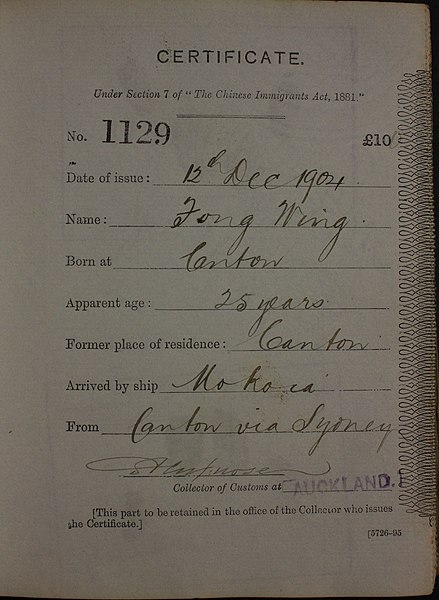 CERTIFICATE.
Under Section 7 of "The Chinese Immigrants Act, 1881."
No. 1129 £10
Date of issue: 12th Dec 1904
Name: Fong Wing
Born at Canton
Apparent age: 25 years
Former place of residence: Canton
Arrived by ship Mokoia
From Canton via Sydney
Collector of Customs at AUCKLAND.
[This part to be retained in the office of the Collector who issues
the Certificate.]
[5726-95